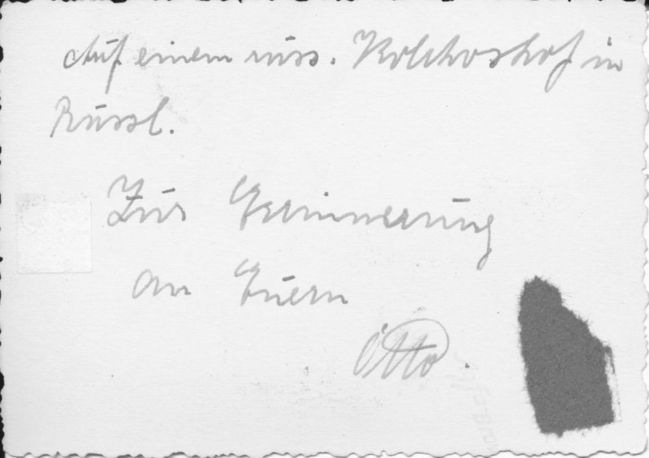 Auf einem russ. Kolchoshof in
Russl.
Zur Erinnerung
an Euern
Otto.